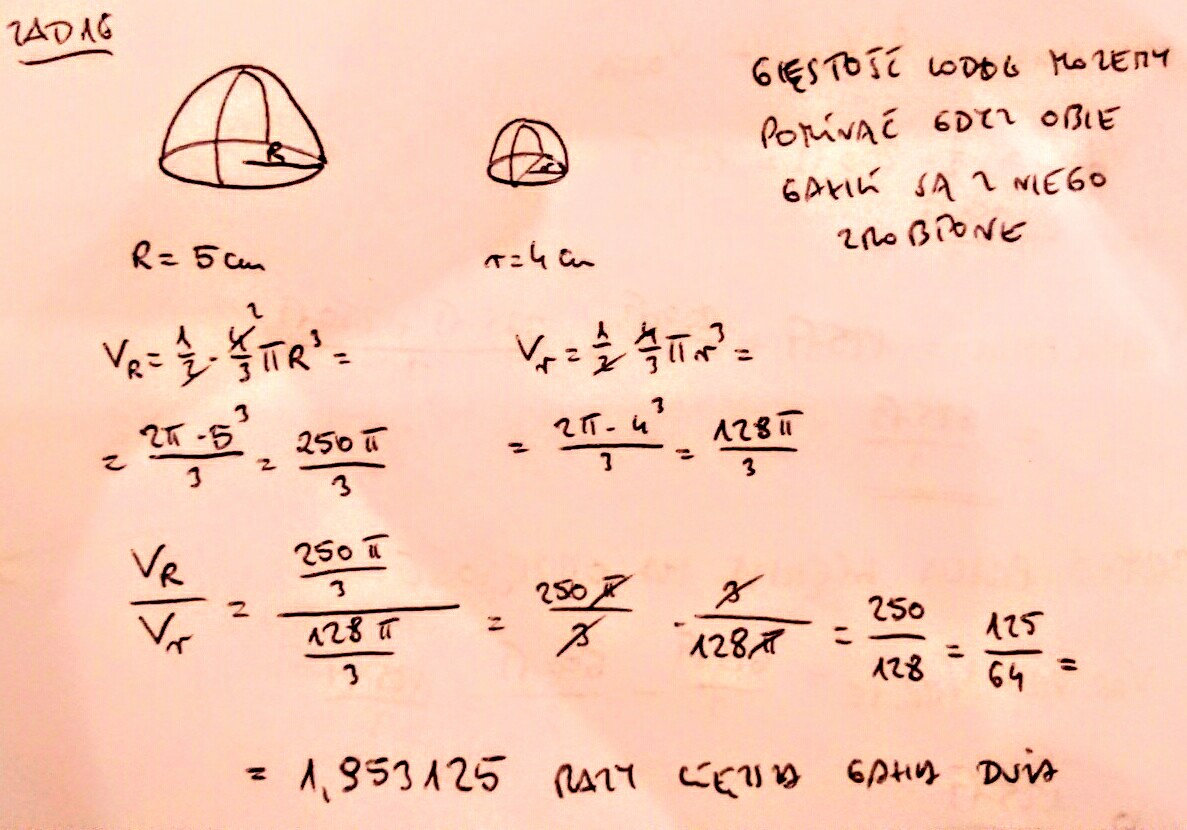 ZAD 16
GĘSTOŚĆ LODÓW MOŻEMY
POMINĄĆ GDYŻ OBIE
GAŁKI SĄ Z NIEGO
ZROBIONE
R
r
R = 5 cm
r = 4 cm
V_R = 1/2 · 4/3 πR³ =
2
V_r = 1/2 4/3 πr³ =
= 2π · 5³ / 3 = 250π / 3
= 2π · 4³ / 3 = 128π / 3
V_R / V_r = (250π / 3) / (128π / 3) = 250π / 3 · 3 / 128π = 250 / 128 = 125 / 64 =
= 1,953125 RAZY CIĘŻSZA GAŁKA DUŻA